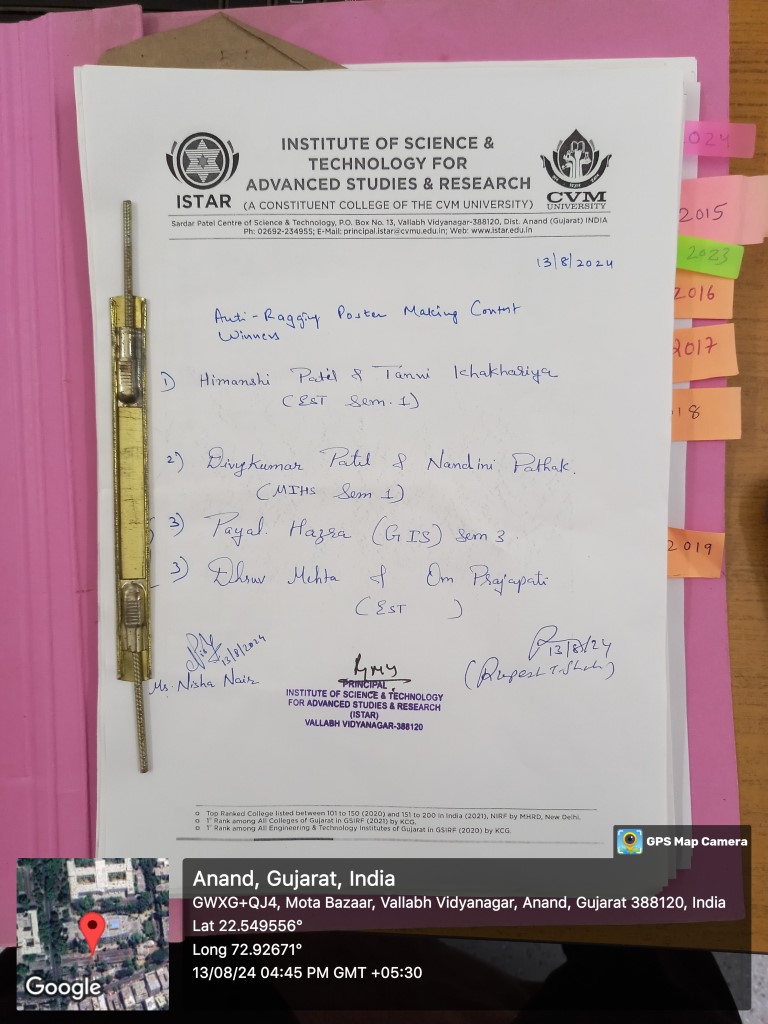 INSTITUTE OF SCIENCE &
TECHNOLOGY FOR
ADVANCED STUDIES & RESEARCH
(A CONSTITUENT COLLEGE OF THE CVM UNIVERSITY)
ISTAR
CVM
UNIVERSITY
Sardar Patel Centre of Science & Technology, P.O. Box No. 13, Vallabh Vidyanagar-388120, Dist. Anand (Gujarat) INDIA
Ph: 02692-234955; E-Mail: principal.istar@cvmu.edu.in; Web: www.istar.edu.in
13/8/2024
Anti-Ragging Poster Making Contest
Winners
1) Himanshi Patel & Tanvi Khakhariya
(EST Sem. 1)
2) Divykumar Patel & Nandini Pathak.
(MIHS Sem 1)
3) Payal. Hazra (GIS) Sem 3
3) Dhruv Mehta & Om Prajapati
(EST )
13/8/2024
Ms. Nisha Nair
PRINCIPAL,
INSTITUTE OF SCIENCE & TECHNOLOGY
FOR ADVANCED STUDIES & RESEARCH
(ISTAR)
VALLABH VIDYANAGAR-388120
13/8/24
(Rupesh T. Shah)
Top Ranked College listed between 101 to 150 (2020) and 151 to 200 in India (2021), NIRF by MHRD, New Delhi.
1st Rank among All Colleges of Gujarat in GSIRF (2021) by KCG.
1st Rank among All Engineering & Technology Institutes of Gujarat in GSIRF (2020) by KCG.
024
2015
2023
2016
2017
18
2019
GPS Map Camera
Anand, Gujarat, India
GWXG+QJ4, Mota Bazaar, Vallabh Vidyanagar, Anand, Gujarat 388120, India
Lat 22.549556°
Long 72.92671°
13/08/24 04:45 PM GMT +05:30
Google